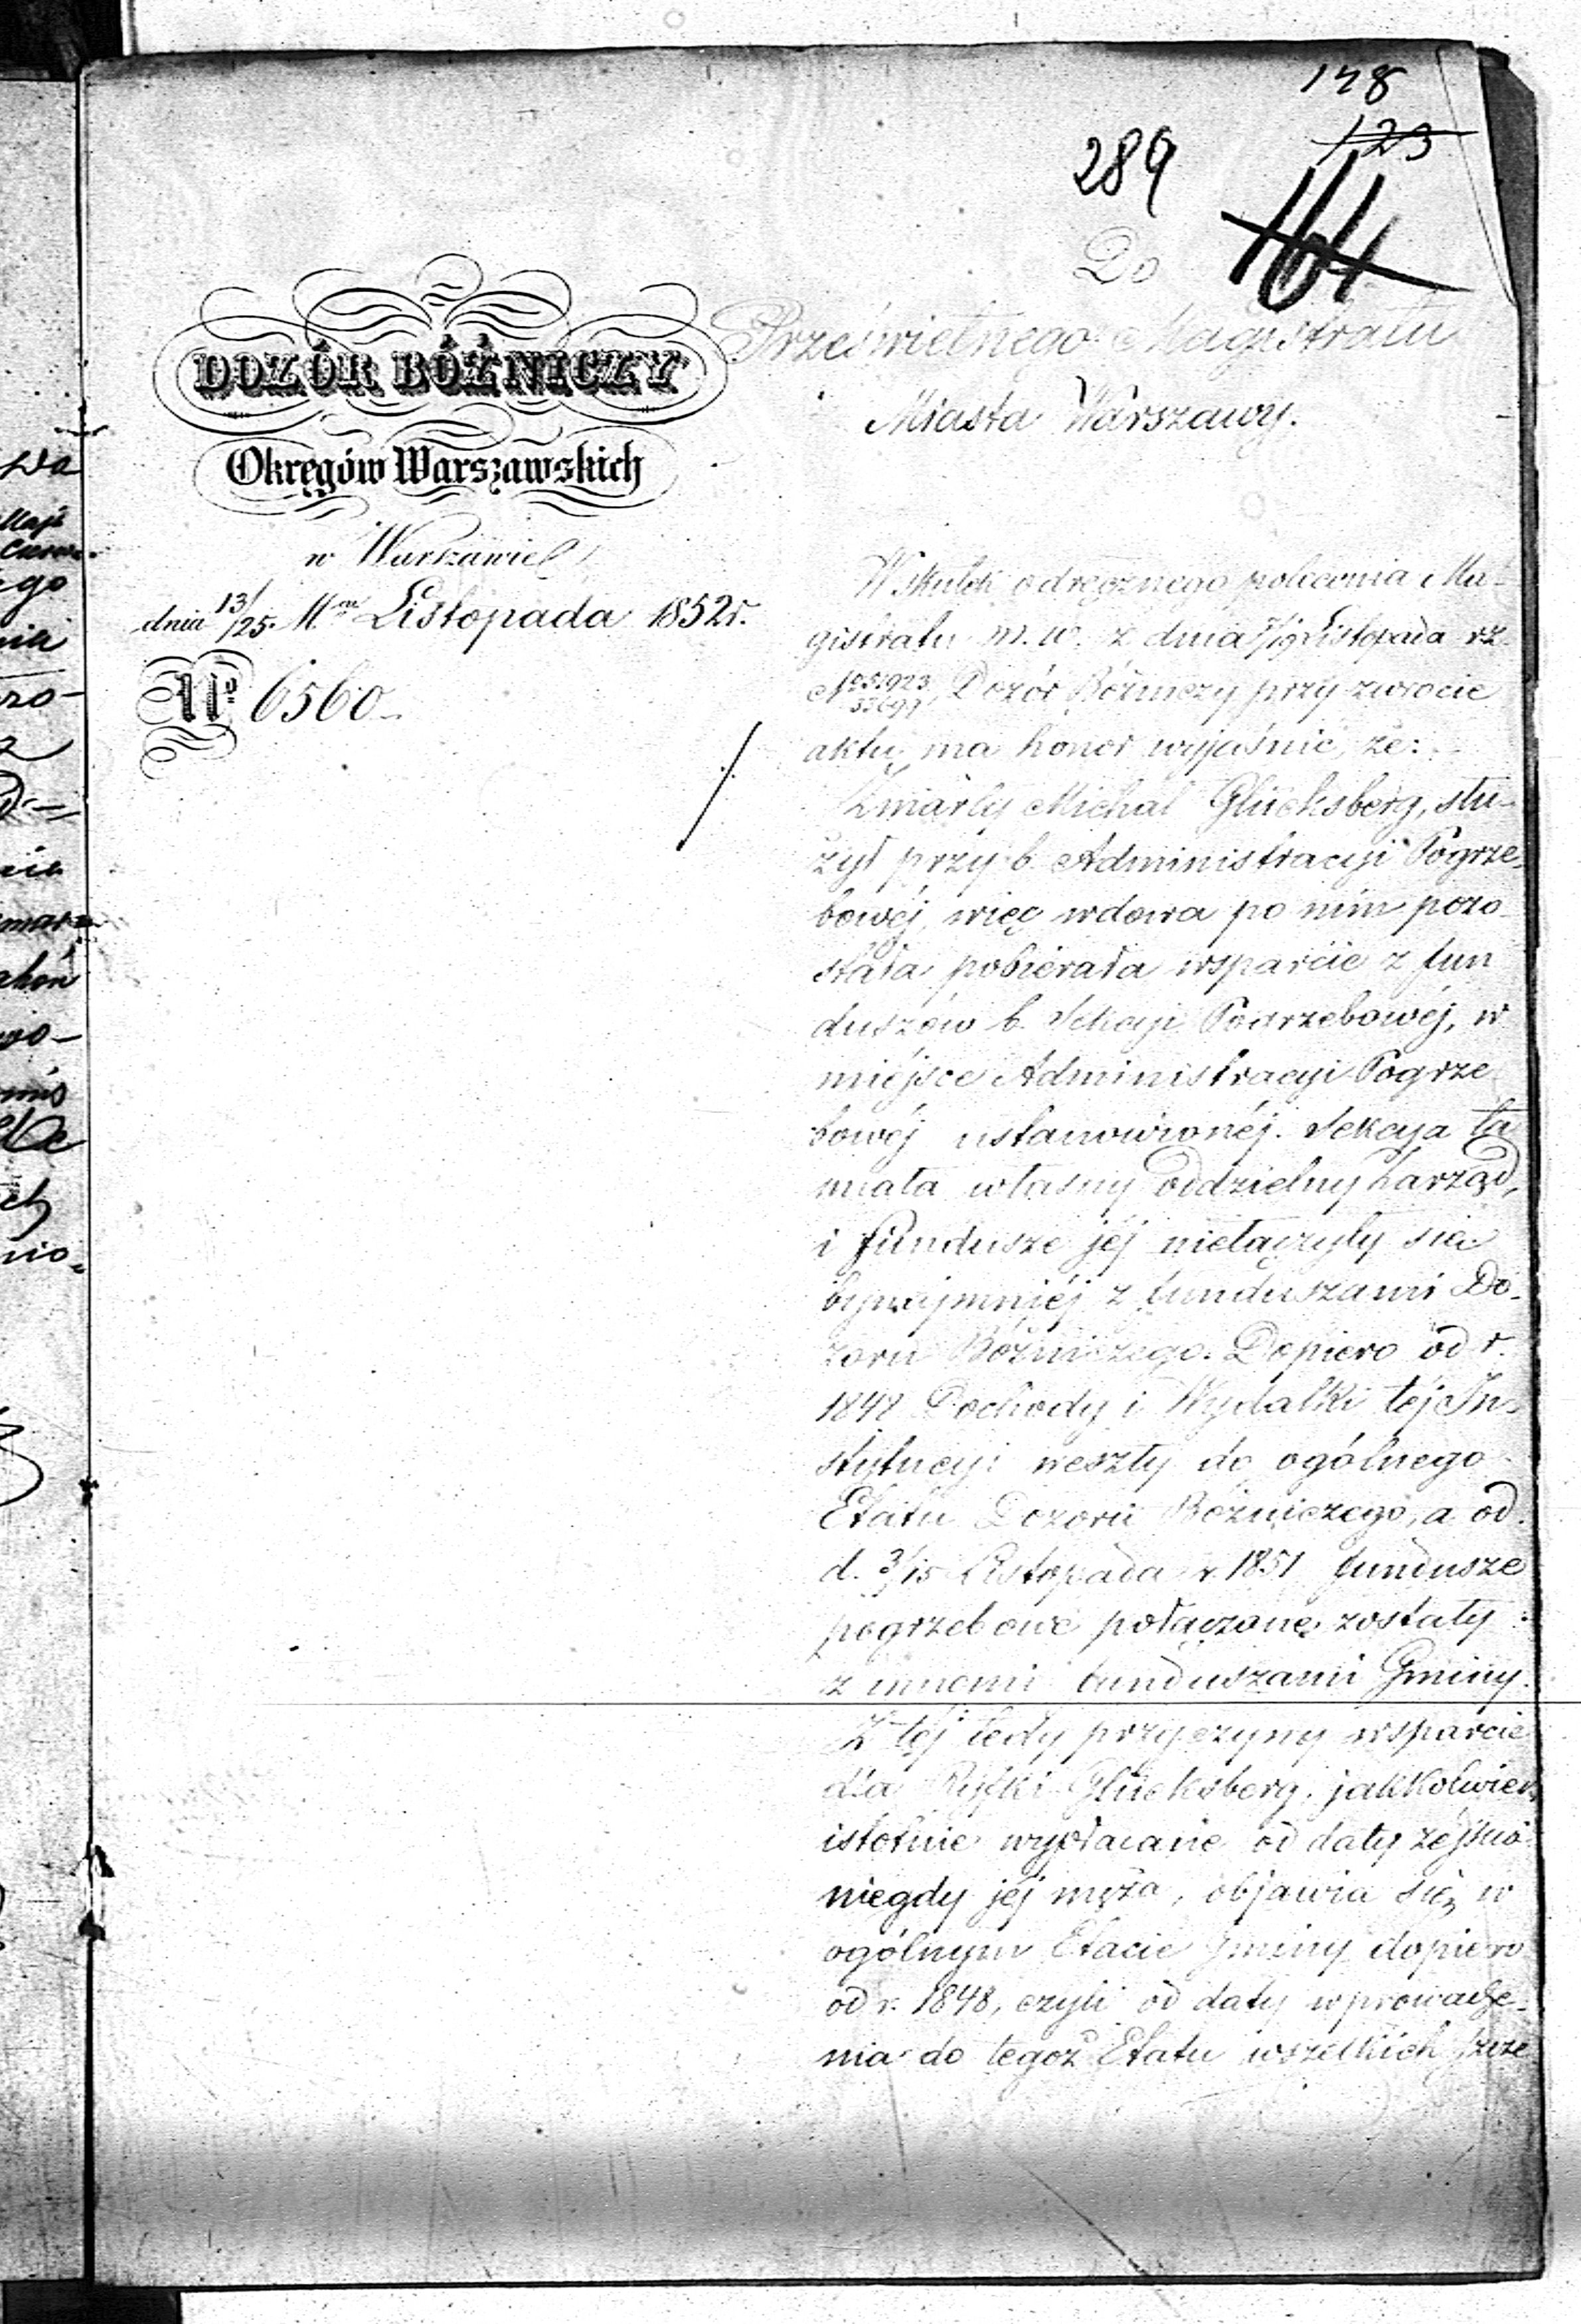 148
123
289
164
Do
Prześwietnego Magistratu
Miasta Warszawy.
DOZÓR BÓŻNICZY
Okręgów Warszawskich
w Warszawie
dnia 13/25. M.ca Listopada 1852 r.
No 6560
W skutek odręcznego polecenia Ma-
gistratu m. w. z dnia 7/19 Listopada rz.
Dozór Bóżniczy przy zwrocie
aktu, ma honor wyjaśnić, że:
Zmarły Michał Glücksberg, słu-
żył przy b. Administracyi Pogrze-
bowéj, więc wdowa po nim pozo-
stała pobierała wsparcie z fun
duszów b. Sekcyi Pogrzebowéj, w
miéjsce Administracyi Pogrze
bowéj ustanowionéj. Sekcya ta
miała własny oddzielny Zarząd,
i fundusze jéj niełączyły się
bynajmniéj z funduszami Do-
zoru Bóżniczego. Dopiero od r.
1848 Dochody i Wydatki téj In-
stytucyi weszły do ogólnego
Etatu Dozoru Bóżniczego, a od
d. 3/15 Listopada r. 1851 fundusze
pogrzebowe połączone zostały
z innemi funduszami Gminy.
Z téj tedy przyczyny wsparcie
dla Ryfki Glücksberg, jakkolwiek
istotnie wypłacane od daty zejścia
niegdy jéj męża, objawia się w
ogólnym Etacie Gminy dopiero
od r. 1848, czyli od daty wprowadze-
nia do tegoż Etatu wszelkich